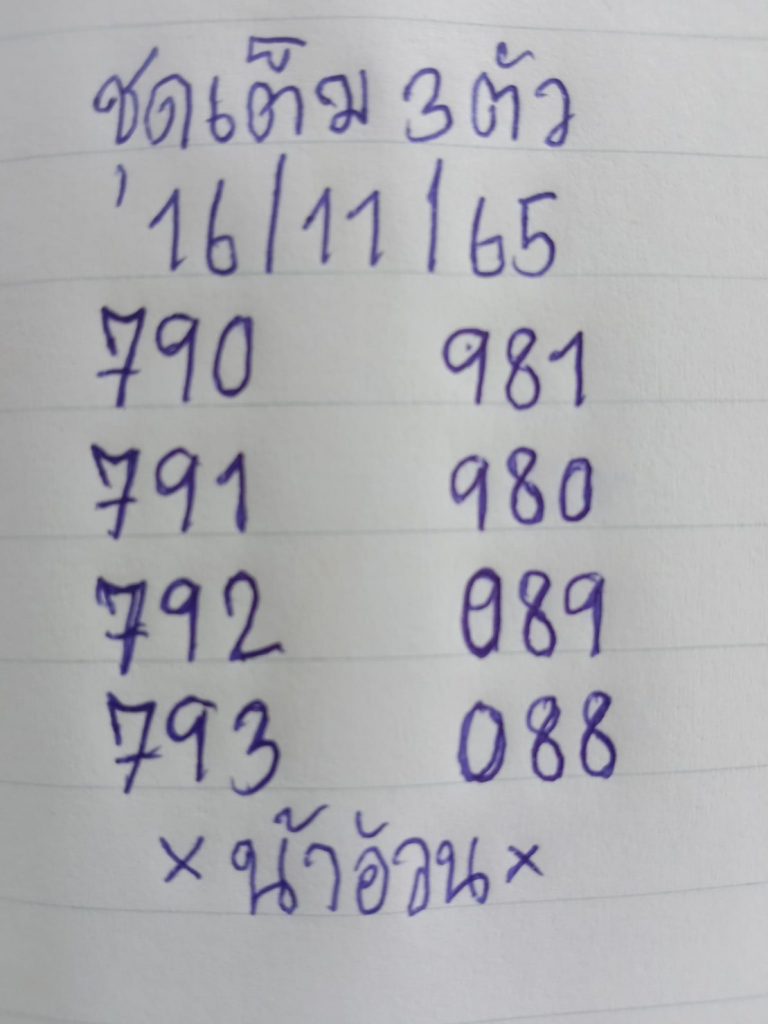 ชดเต็ม 3 ตัว
'16/11/65
790 981
791 980
792 089
793 088
× น้าอ้วน ×